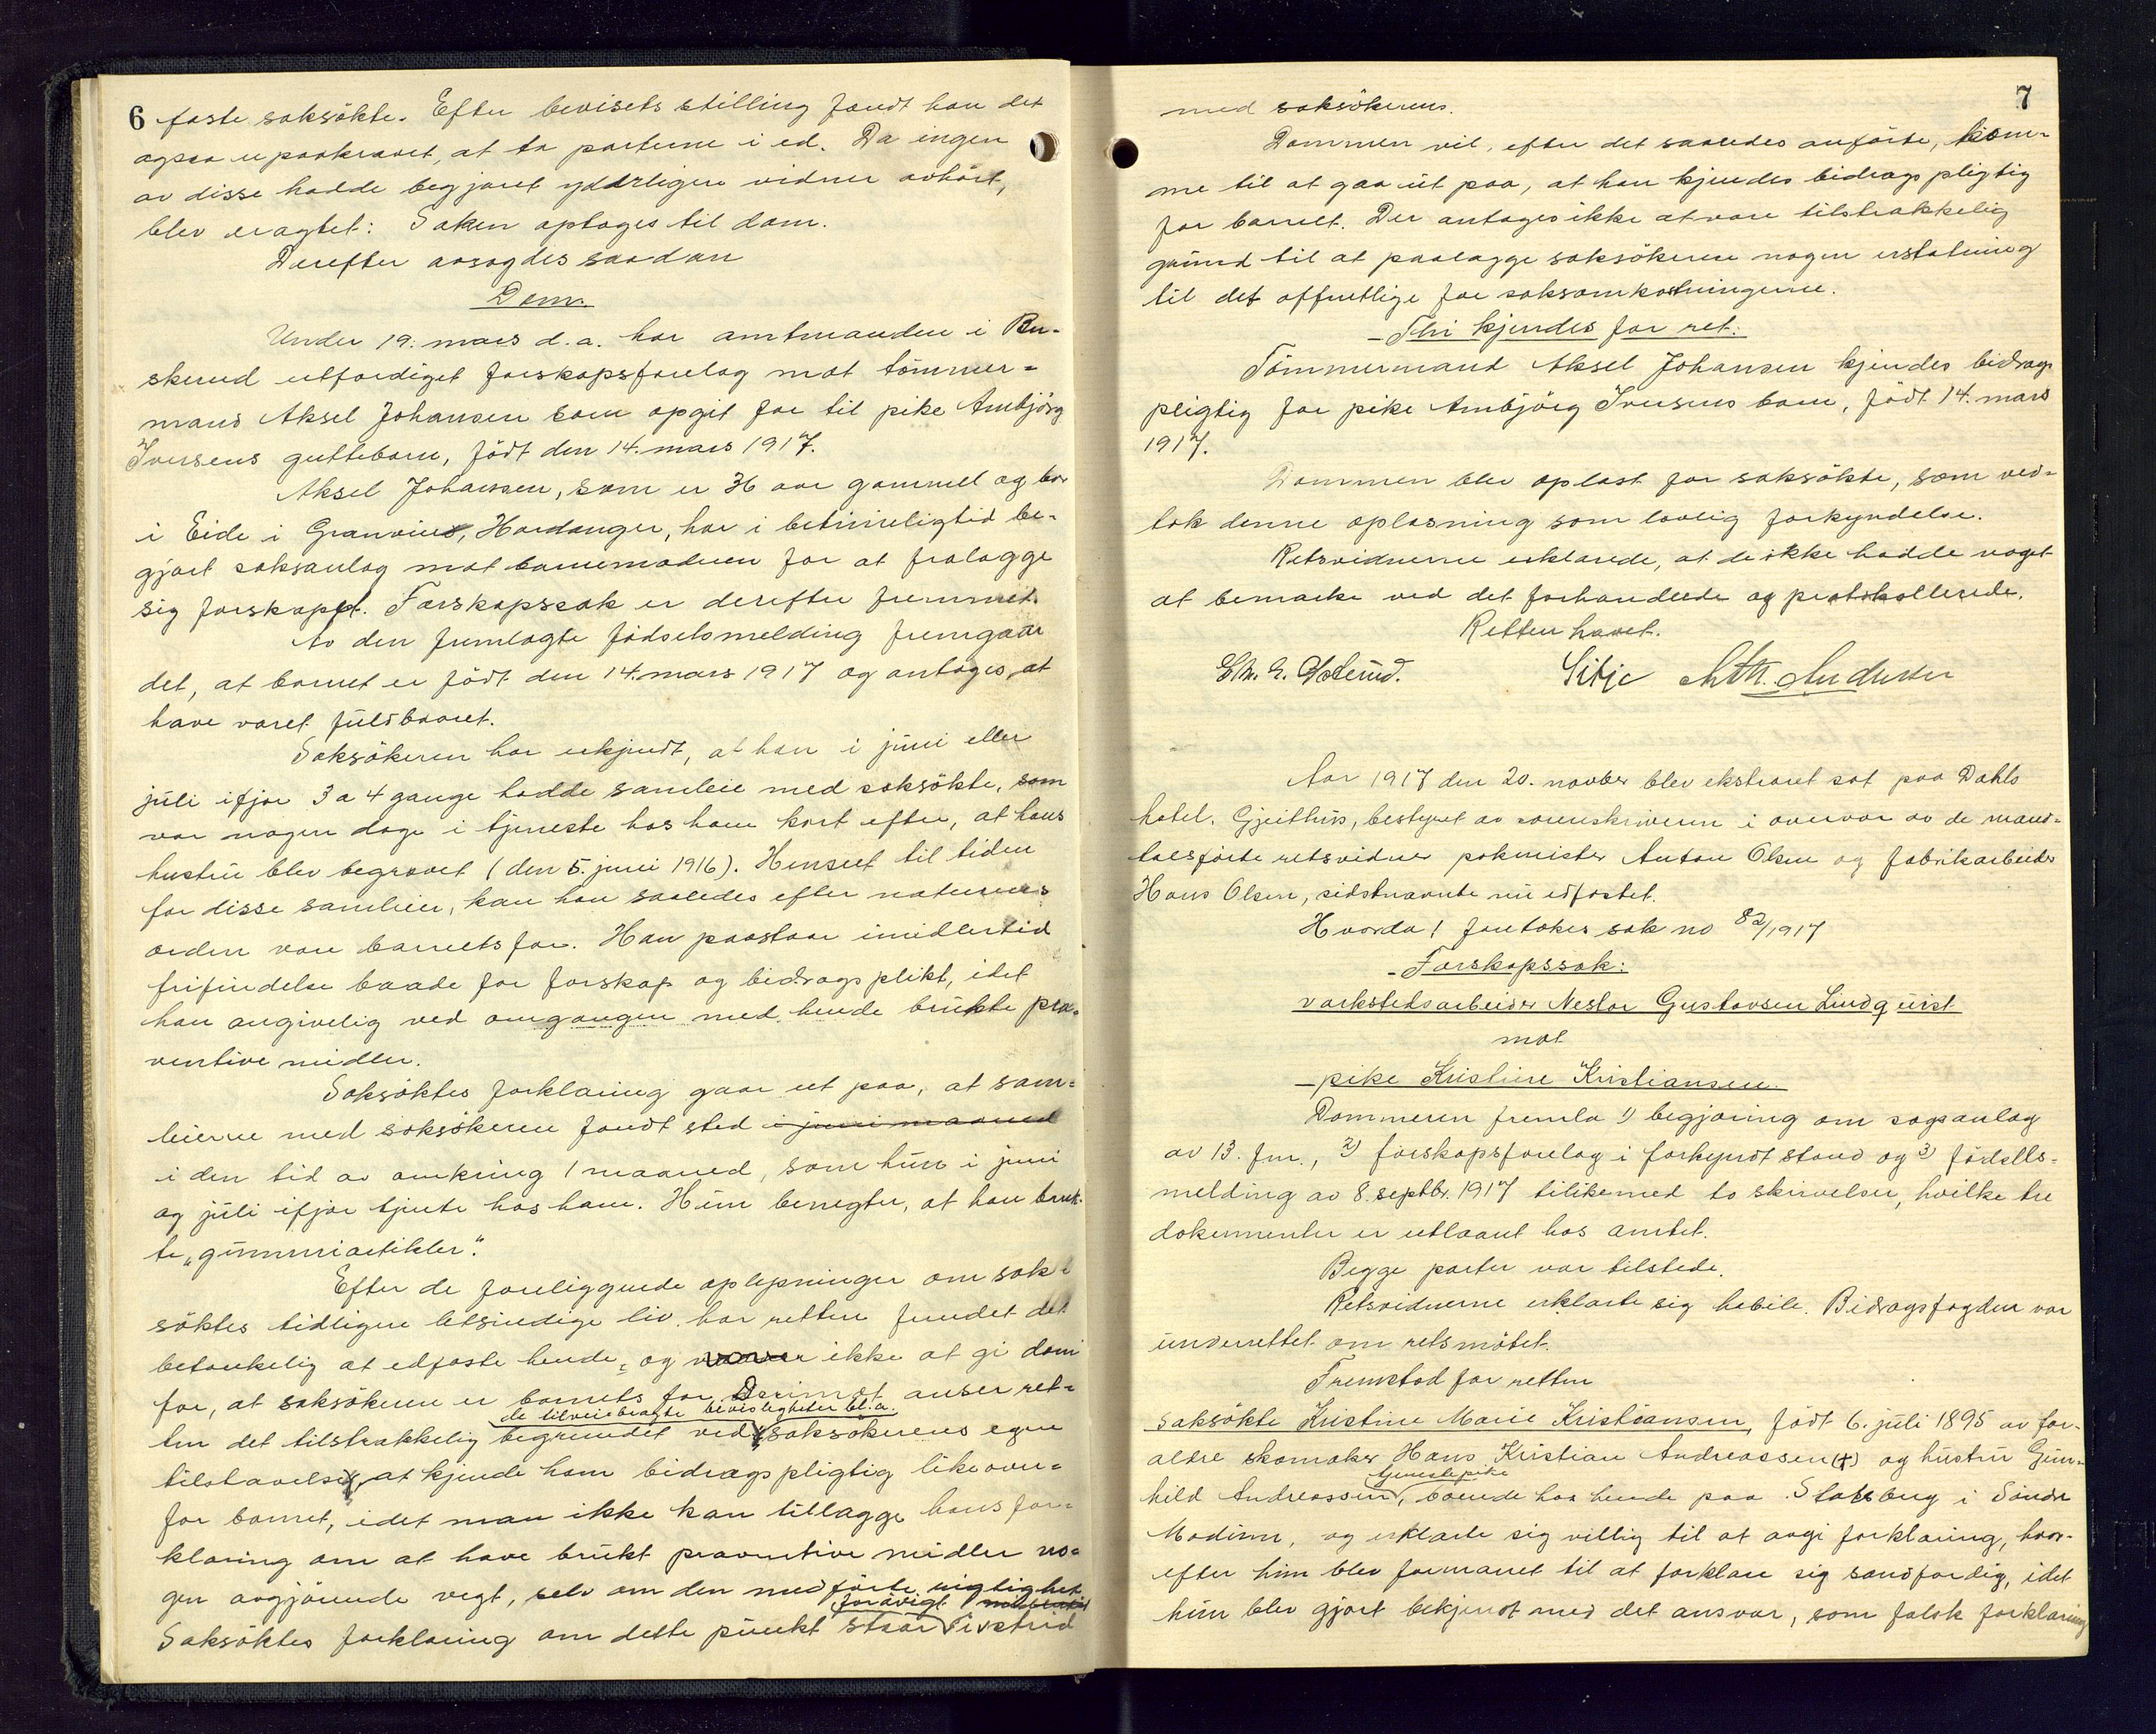 6
faste saksökte. Efter bevisets stilling fandt han det
ogsaa upaakrævet, at ta parterne i ed. Da ingen
av disse hadde begjæret yderligere vidner avhört,
blev eragtet: Saken optages til dom.
Derefter avsagdes saadan
Dom.
Under 19. mars d.a. har amtmanden i Bu-
skerud utfærdiget farskapsforelæg mot tömmer-
mand Aksel Johansen som opgit far til pike Ambjörg
Iversens guttebarn, födt den 14. mars 1917.
Aksel Johansen, som er 36 aar gammel og bor
i Eide i Granvin, Hardanger, har i betimeligtid be-
gjært saksanlæg mot barnemoderen for at fralægge
sig farskapet. Farskapssak er derefter fremmet.
Av den fremlagte födselsmelding fremgaar
det, at barnet er födt den 14. mars 1917 og antages at
have været fuldbaaret.
Saksökeren har erkjendt, at han i juni eller
juli ifjor 3 a 4 gange hadde samleie med saksökte, som
var nogen dage i tjeneste hos ham kort efter, at hans
hustru blev begravet (den 5. juni 1916). Henseet til tiden
for disse samleier, kan han saaledes efter naturens
orden være barnets far. Han paastaar imidlertid
frifindelse baade for farskap og bidragsplikt, idet
han angivelig ved omgangen med hende brukte præ-
ventive midler.
Saksöktes forklaring gaar ut paa, at sam-
leierne med saksökeren fandt sted i juni maaned
i den tid av omkring 1 maaned, som hun i juni
og juli ifjor tjente hos ham. Hun benegter, at han bruk-
te „gummiartikler".
Efter de foreliggende oplysninger om sak-
söktes tidligere letsindige liv har retten fundet det
betænkelig at edfæste hende, og vover ikke at gi dom
for, at saksökeren er barnets far. Derimot anser ret-
de tilveiebragte bevisligheter bl.a.
ten det tilstrækkelig begrundet ved saksökerens egen
tilstaaelse, at kjende ham bidragspligtig likeover-
for barnet, idet man ikke kan tillægge hans for-
klaring om at have brukt præventive midler no-
gen avgjörende vegt, selv om den medförte rigtighet
forövrigt
Saksöktes forklaring om dette punkt staar i strid
7
med saksökerens.
Dommen vil, efter det saaledes anförte, kom-
me til at gaa ut paa, at han kjendes bidragspligtig
for barnet. Der antages ikke at være tilstrækkelig
grund til at paalægge saksökeren nogen erstatning
til det offentlige for saksomkostningerne.
Thi kjendes for ret:
Tömmermand Aksel Johansen kjendes bidrags-
pligtig for pike Ambjörg Iversens barn, födt 14. mars
1917.
Dommen blev oplæst for saksökte, som ved-
tok denne oplæsning som lovlig forkyndelse.
Retsvidnerne erklærede, at de ikke hadde noget
at bemærke ved det forhandlede og protokollerede.
Retten hævet.
Litje Andersen
Aar 1917 den 20. novber blev ekstraret sat paa Dahls
hotel, Gjeithus, bestyret av sorenskriveren i overvær av de mand-
talsförte retsvidner pakmester Anton Olsen og fabrikarbeider
Hans Olsen, sidstnævnte nu edfæstet.
Hvorda! foretokes sak no 82/1917
Farskapssak:
verkstedsarbeider Nestor Gustavsen Lindquist
mot
pike Kristine Kristiansen
Dommeren fremla 1) begjæring om sagsanlæg
av 13. f.m., 2) farskapsforelæg i forkyndt stand og 3) födsels-
melding av 8. septbr. 1917 tilikemed to skrivelser, hvilke tre
dokumenter er utlaant hos amtet.
Begge parter var tilstede.
Retsvidnerne erklærte sig habile. Bidragsfogden var
underrettet om retsmötet.
Fremstod for retten
Saksökte Kristine Marie Kristiansen, födt 6. juli 1895 av for-
ældre skomaker Hans Kristian Andreassen (+) og hustru Gun-
tjenestepike
hild Andreassen, boende hos hende paa Stalsberg i Söndre
Modum, og erklærte sig villig til at avgi forklaring, hvor-
efter hun blev formanet til at forklare sig sandfærdig, idet
hun blev gjort bekjendt med det ansvar, som falsk forklaring